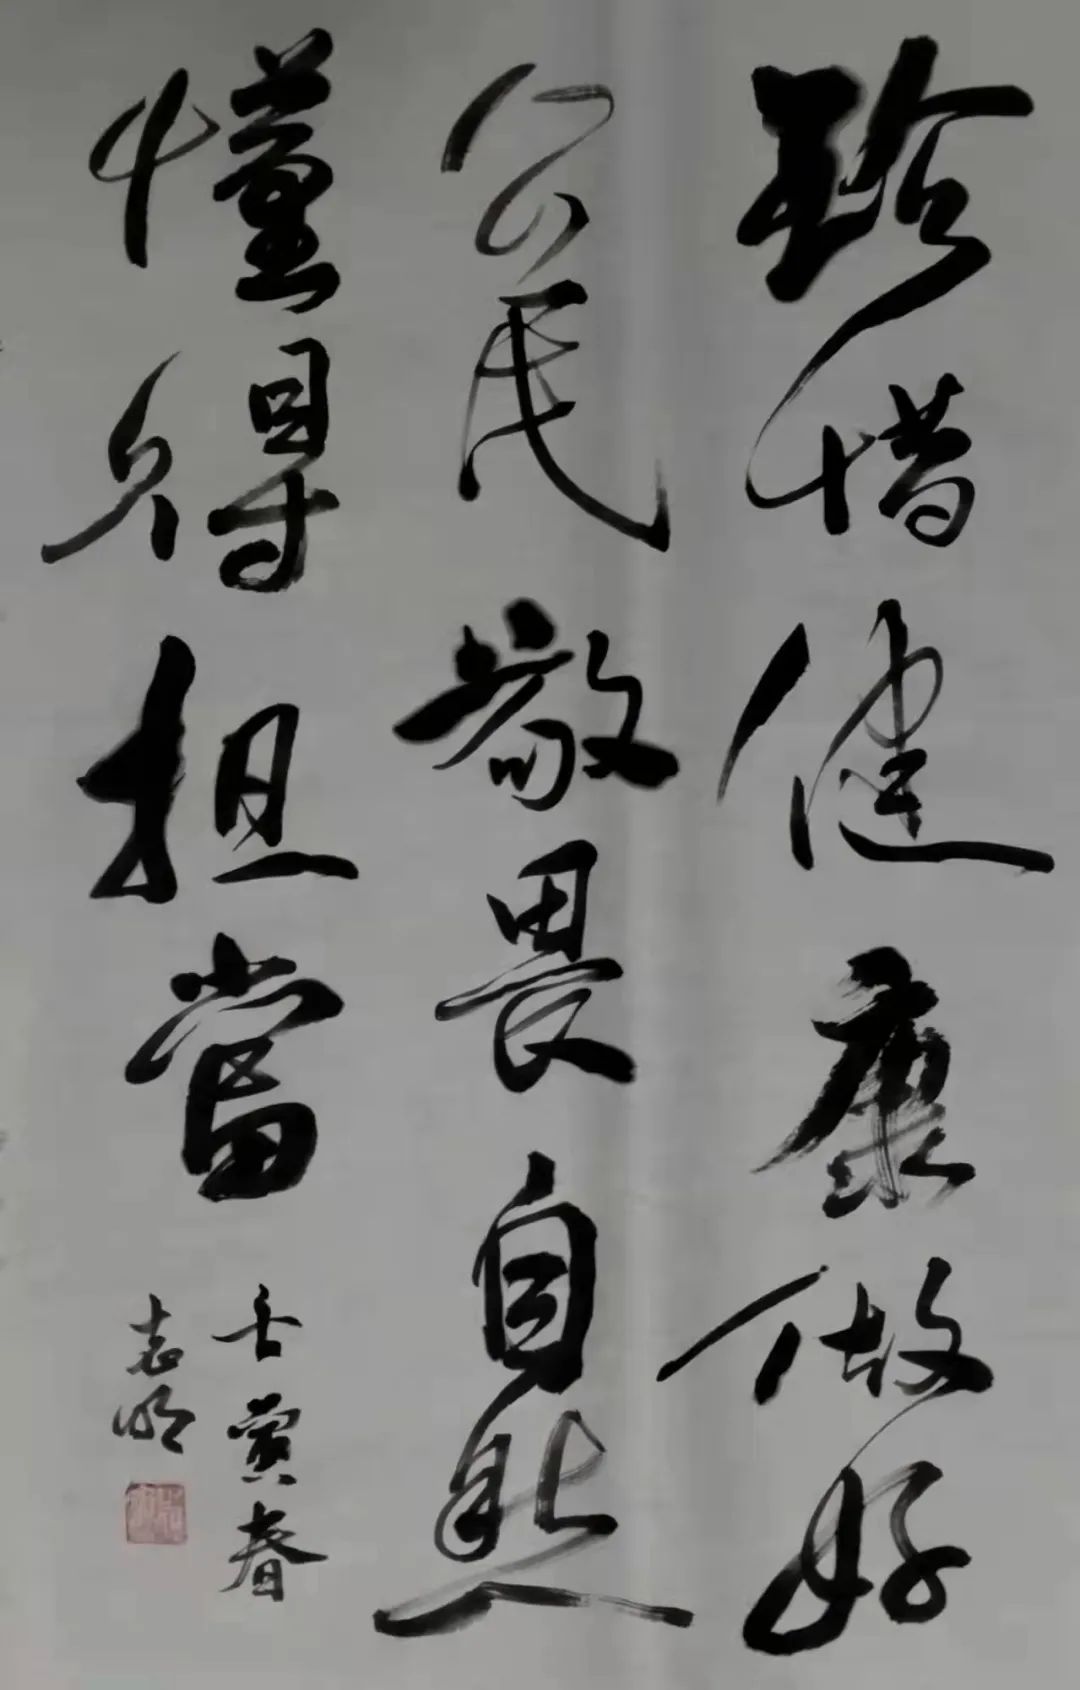 珍惜健康做好
公民敬畏自然
懂得担當
壬寅春
志明